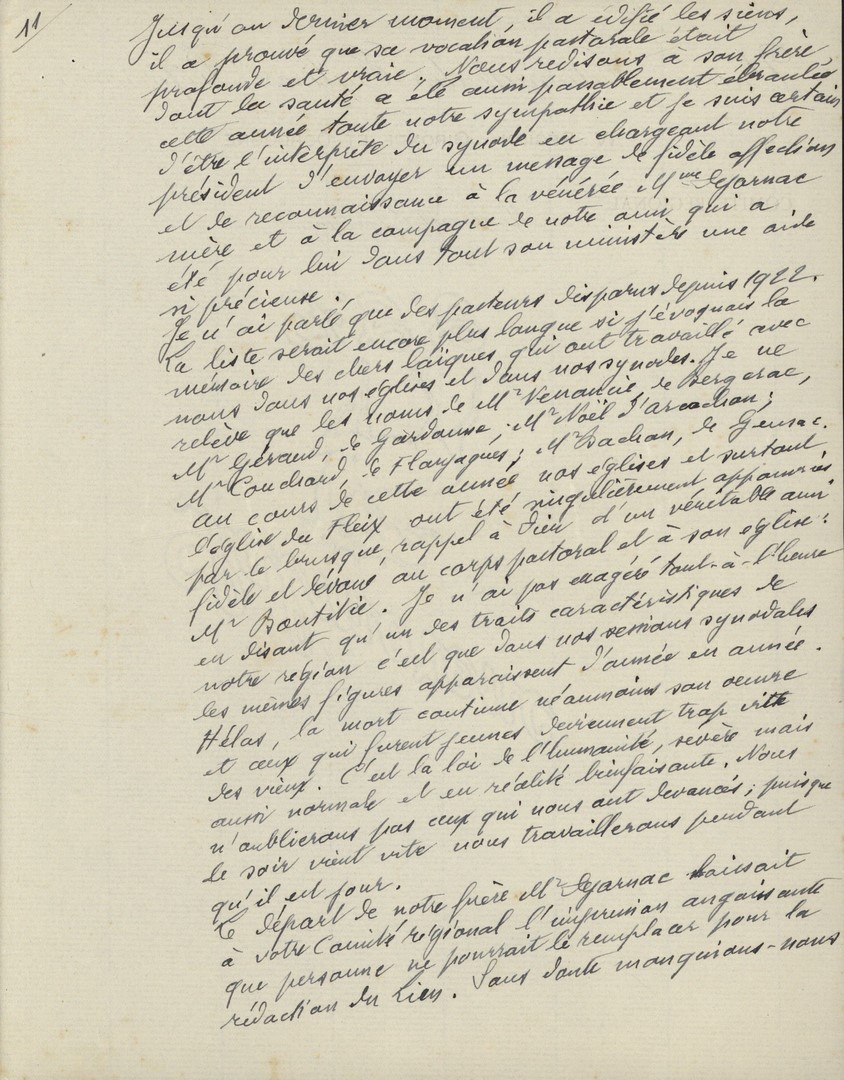 11
Jusqu'au dernier moment, il a édifié les siens,
il a prouvé que sa vocation pastorale était
profonde et vraie. Nous redisons à son frère
dont la santé a été aussi passablement ébranlée
cette année toute notre sympathie et je suis certain
d'être l'interprète du synode en chargeant notre
président d'envoyer un message de fidèle affection
et de reconnaissance à la vénérée Mme Dejarnac
mère et à la compagne de notre ami qui a
été pour lui dans tout son ministère une aide
si précieuse.
Je n'ai parlé que des pasteurs disparus depuis 1922.
La liste serait encore plus longue si j'évoquais la
mémoire des chers laïques qui ont travaillé avec
nous dans nos églises et dans nos synodes. Je ne
relève que les noms de Mr Venancie, de Bergerac,
Mr Géraud, de Gardonne; Mr Noël d'Arcachon;
Mr Couchard, de Flaujagues; Mr Bachan, de Gensac.
Au cours de cette année nos églises et surtout
l'église du Fleix ont été singulièrement appauvries
par le brusque rappel à Dieu d'un véritable ami
fidèle et dévoué au corps pastoral et à son église:
Mr Boutitie. Je n'ai pas exagéré tout-à-l'heure
en disant qu'un des traits caractéristiques de
notre région c'est que dans nos sessions synodales
les mêmes figures apparaissent d'année en année.
Hélas, la mort continue néanmoins son oeuvre
et ceux qui furent jeunes deviennent trop vite
des vieux. C'est la loi de l'humanité, sévère mais
aussi normale et en réalité bienfaisante. Nous
n'oublierons pas ceux qui nous ont devancés; puisque
le soir vient vite nous travaillerons pendant
qu'il est jour.
Le départ de notre frère Mr Dejarnac laissait
à votre Comité régional l'impression angoissante
que personne ne pourrait le remplacer pour la
rédaction du Lien. Sans doute manquions-nous